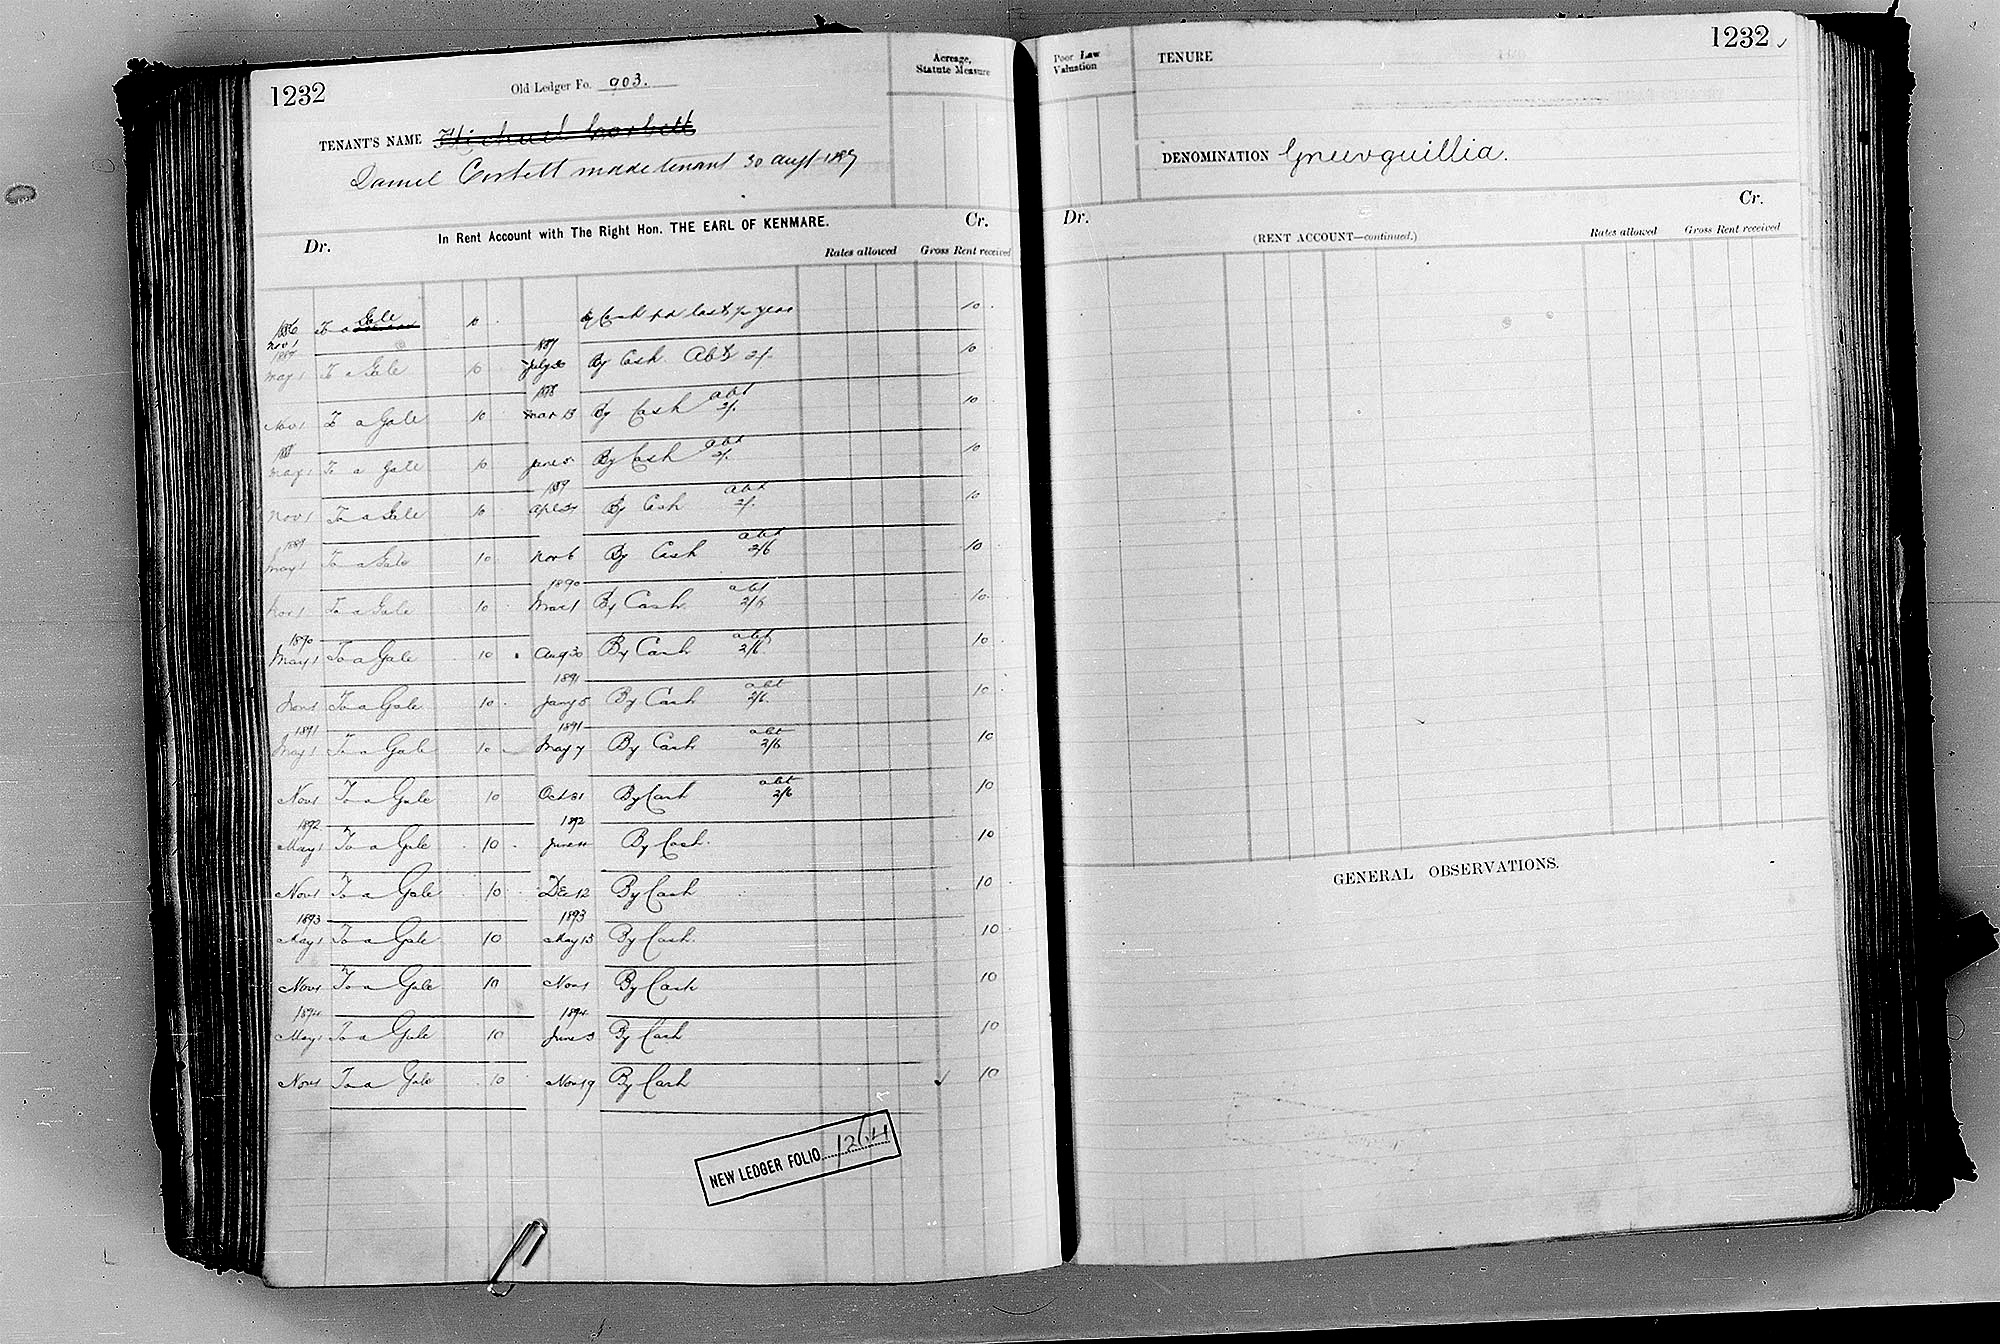 1232
Old Ledger Fo. 903.
Acreage,
Statute Measure
TENANT'S NAME Michael Corbett
Daniel Corbett made tenant 30 Augt 1887
In Rent Account with The Right Hon. THE EARL OF KENMARE.
Dr.
Cr.
Rates allowed Gross Rent received
1886
Nov 1 To a Gale 10 By Cash pd last ½ year 10
1887 1887
May 1 To a Gale 10 July 30 By Cash Abt 2/- 10
1888
Nov 1 To a Gale 10 Mar 13 By Cash abt 2/- 10
1888
May 1 To a Gale 10 June 5 By Cash abt 2/- 10
1889
Nov 1 To a Gale 10 Apl By Cash abt 2/- 10
1889
May 1 To a Gale 10 Nov 6 By Cash abt 2/6 10
1890
Nov 1 To a Gale 10 Mar 1 By Cash abt 2/6 10
1890
May 1 To a Gale 10 Aug 30 By Cash abt 2/6 10
1891
Nov 1 To a Gale 10 Jany 5 By Cash abt 2/6 10
1891 1891
May 1 To a Gale 10 May 7 By Cash abt 2/6 10
Nov 1 To a Gale 10 Oct 31 By Cash abt 2/6 10
1892 1892
May 1 To a Gale 10 June 11 By Cash 10
Nov 1 To a Gale 10 Dec 12 By Cash 10
1893 1893
May 1 To a Gale 10 May 13 By Cash 10
Nov 1 To a Gale 10 Nov 1 By Cash 10
1894 1894
May 1 To a Gale 10 June 3 By Cash 10
Nov 1 To a Gale 10 Nov 19 By Cash 10
NEW LEDGER FOLIO 1264
1232
Poor Law
Valuation
TENURE
DENOMINATION Gneevguillia.
Dr.
Cr.
(RENT ACCOUNT—continued.)
Rates allowed Gross Rent received
GENERAL OBSERVATIONS.